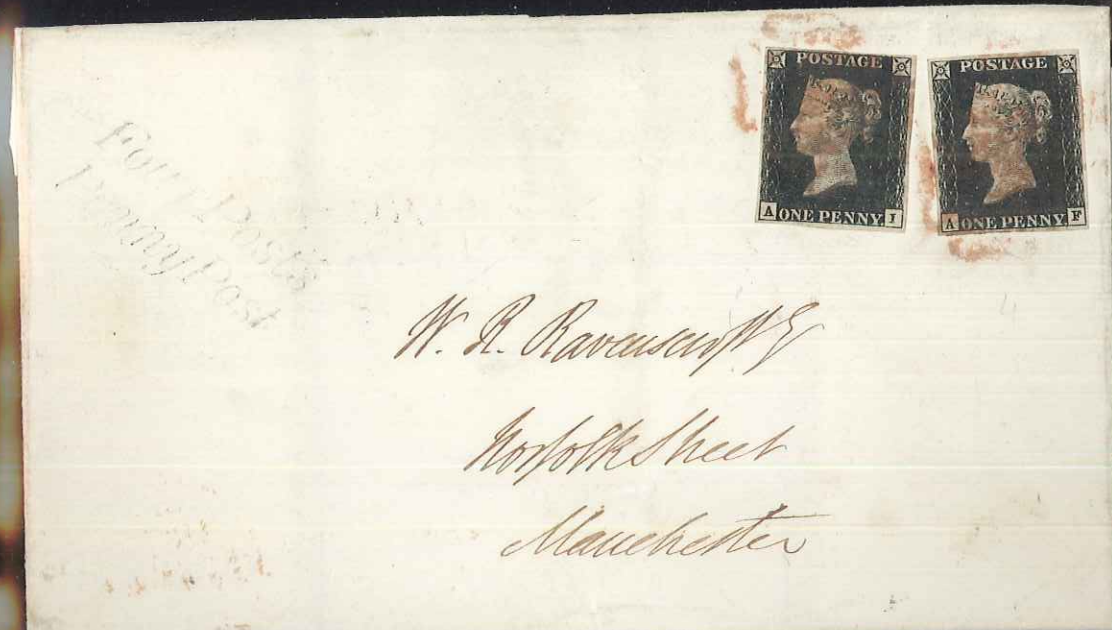 Four Posts
Penny Post
POSTAGE
A ONE PENNY I
POSTAGE
A ONE PENNY F
W. R. Ravenscroft
Norfolk Street
Manchester